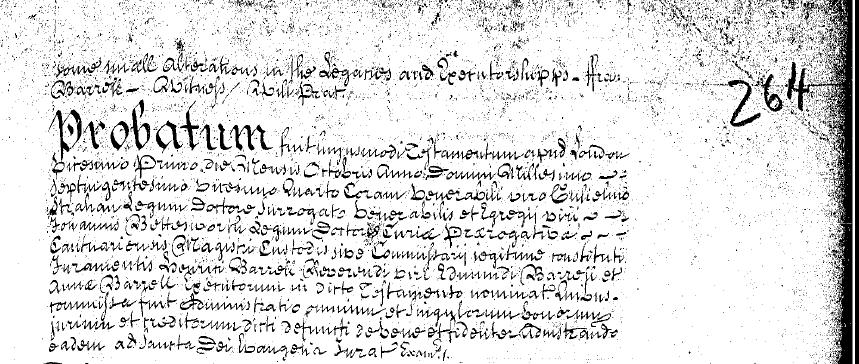 some small Alterations in the Legacies and Executorshipps - ffra:
Barrell - Witness / Will: Prat
264
Probatum fuit hujusmodi Testamentum apud London
Vicesimo Primo die Mensis Octobris Anno Domini Millesimo
Septuigentesimo Vicesimo Quarto Coram Venerabili viro Gulielmo
Strahan Legum Doctore Surrogato Venerabilis et Egregii viri
Johannis Bettesworth Legum Doctoris Curiæ Prærogativæ
Cantuariensis Magistri Custodis sive Commissarii legitime constituti
Juramentis Henrici Barrell Reverendi viri Edmundi Barrell et
Annæ Barrell Executorum in dicto Testamento nominat Quibus
commissa fuit Administratio omnium et singulorum bonorum
jurium et creditorum dicti defuncti de bene et fideliter Admistrando
eadem ad Sancta Dei Evangelia Jurat Exam